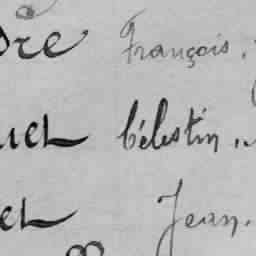 dre François.
uel Célestin.
el Jean.